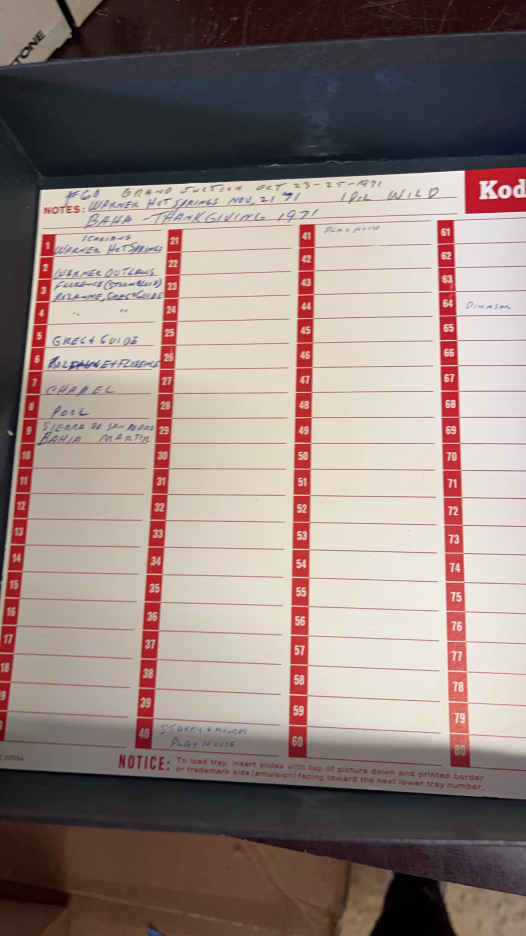 TONE
#60 GRAND JUCTION OCT 23-25-1971
NOTES: WARNER HOT SPRINGS NOV, 21 71 IDIL WILD
BAHA -THANKGIVING 1971
Kod
1 WARNER HOT SPRINGS
2 WARNER OUTLAWS
3 FLORENCE
ROXANNE, GREG & GUIDE
4 " "
5 GREG & GUIDE
6 & FLORENCE
7 CHAPEL
8 POOL
9 SIERRA DE SAN PEDRO
BAHIA MARTIR
10
11
12
13
14
15
16
17
18
9
21
22
23
24
25
26
27
28
29
30
31
32
33
34
35
36
37
38
39
40
PLAY HOUSE
41 PLAY HOUSE
42
43
44
45
46
47
48
49
50
51
52
53
54
55
56
57
58
59
60
61
62
63
64
65
66
67
68
69
70
71
72
73
74
75
76
77
78
79
80
NOTICE: To load tray, insert slides with top of picture down and printed border
or trademark side (emulsion) facing toward the next lower tray number.